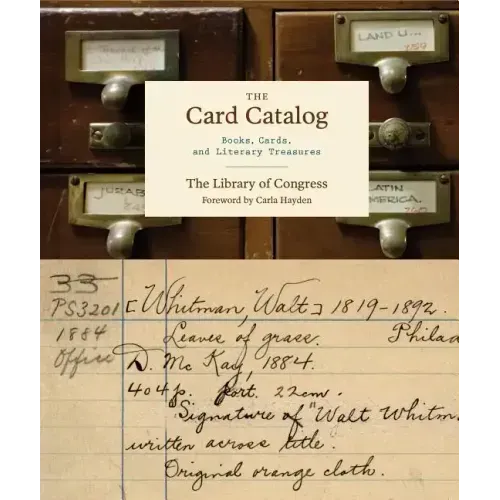 LAND U...
759
THE
Card Catalog
Books, Cards,
and Literary Treasures
The Library of Congress
Foreword by Carla Hayden
JURAB
LATIN
AMERICA.
760
33
PS3201 [Whitman, Walt] 1819-1892.
1884 Leaves of grass. Philad
Office D. Mc Kay, 1884.
404 p. port. 22cm.
Signature of "Walt Whitm
written across title.
Original orange cloth.